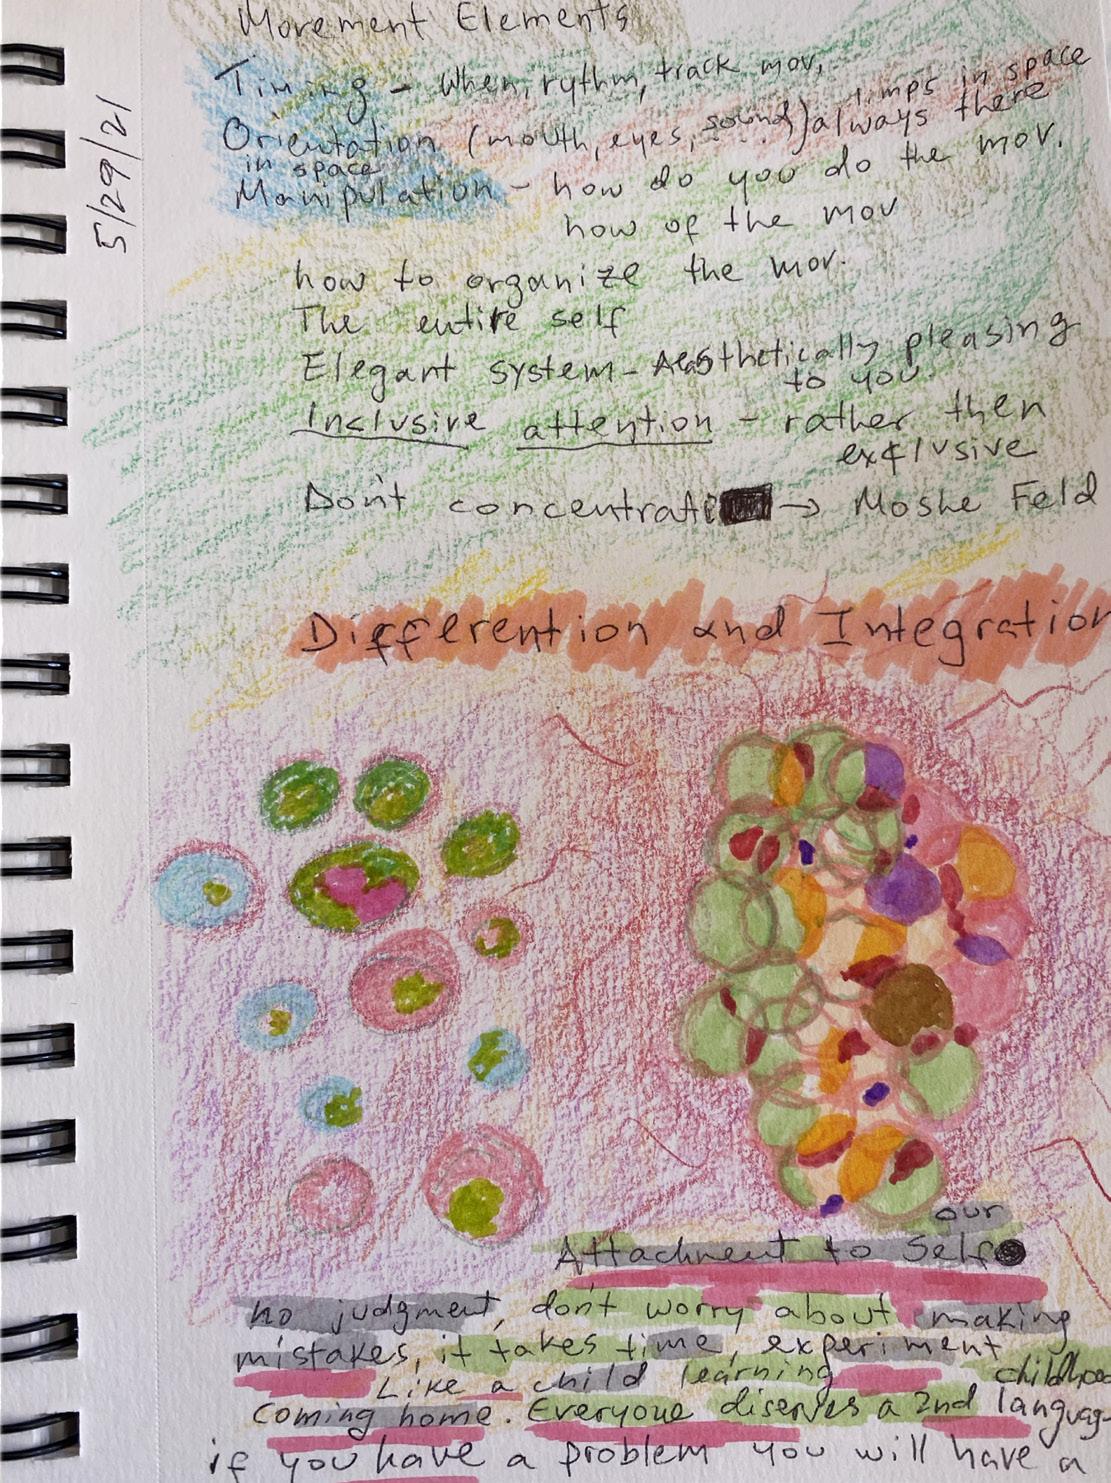 Movement Elements
5/29/21
Timing - When, rythm, track mov,
limps in space
Orientation (mouth, eyes, sound) always there
in space
Manipulation - how do you do the mov.
how of the mov
how to organize the mov.
The entire self
Elegant system - Aesthetically pleasing
to you
Inclusive attention - rather then
exclusive
Don't concentrati → Moshe Feld
Differention and Integration
our
Attachment to Self
no judgment, don't worry about making
mistakes, it takes time, experiment
Like a child learning childhood
Coming home. Everyone diserves a 2nd languag-
if you have a problem you will have a